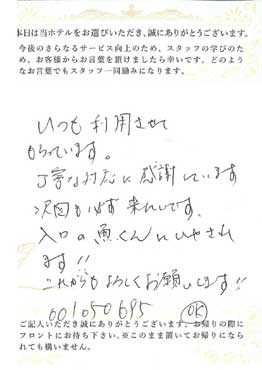 本日は当ホテルをお選びいただき、誠にありがとうございます。
今後のさらなるサービス向上のため、スタッフの学びのた
め、お客様からお言葉を頂けましたら幸いです。どのよう
なお言葉でもスタッフ一同励みになります。
いつも利用させて
もらっています。
丁寧な対応に感謝しています
次回も必ず来たいです。
入口の魚くんにいやされ
ます!!
これからもよろしくお願いします!!
001050695 OK
ご記入いただき誠にありがとうございます。お帰りの際に
フロントにお持ち下さい。※このまま置いてお帰りになら
れても構いません。